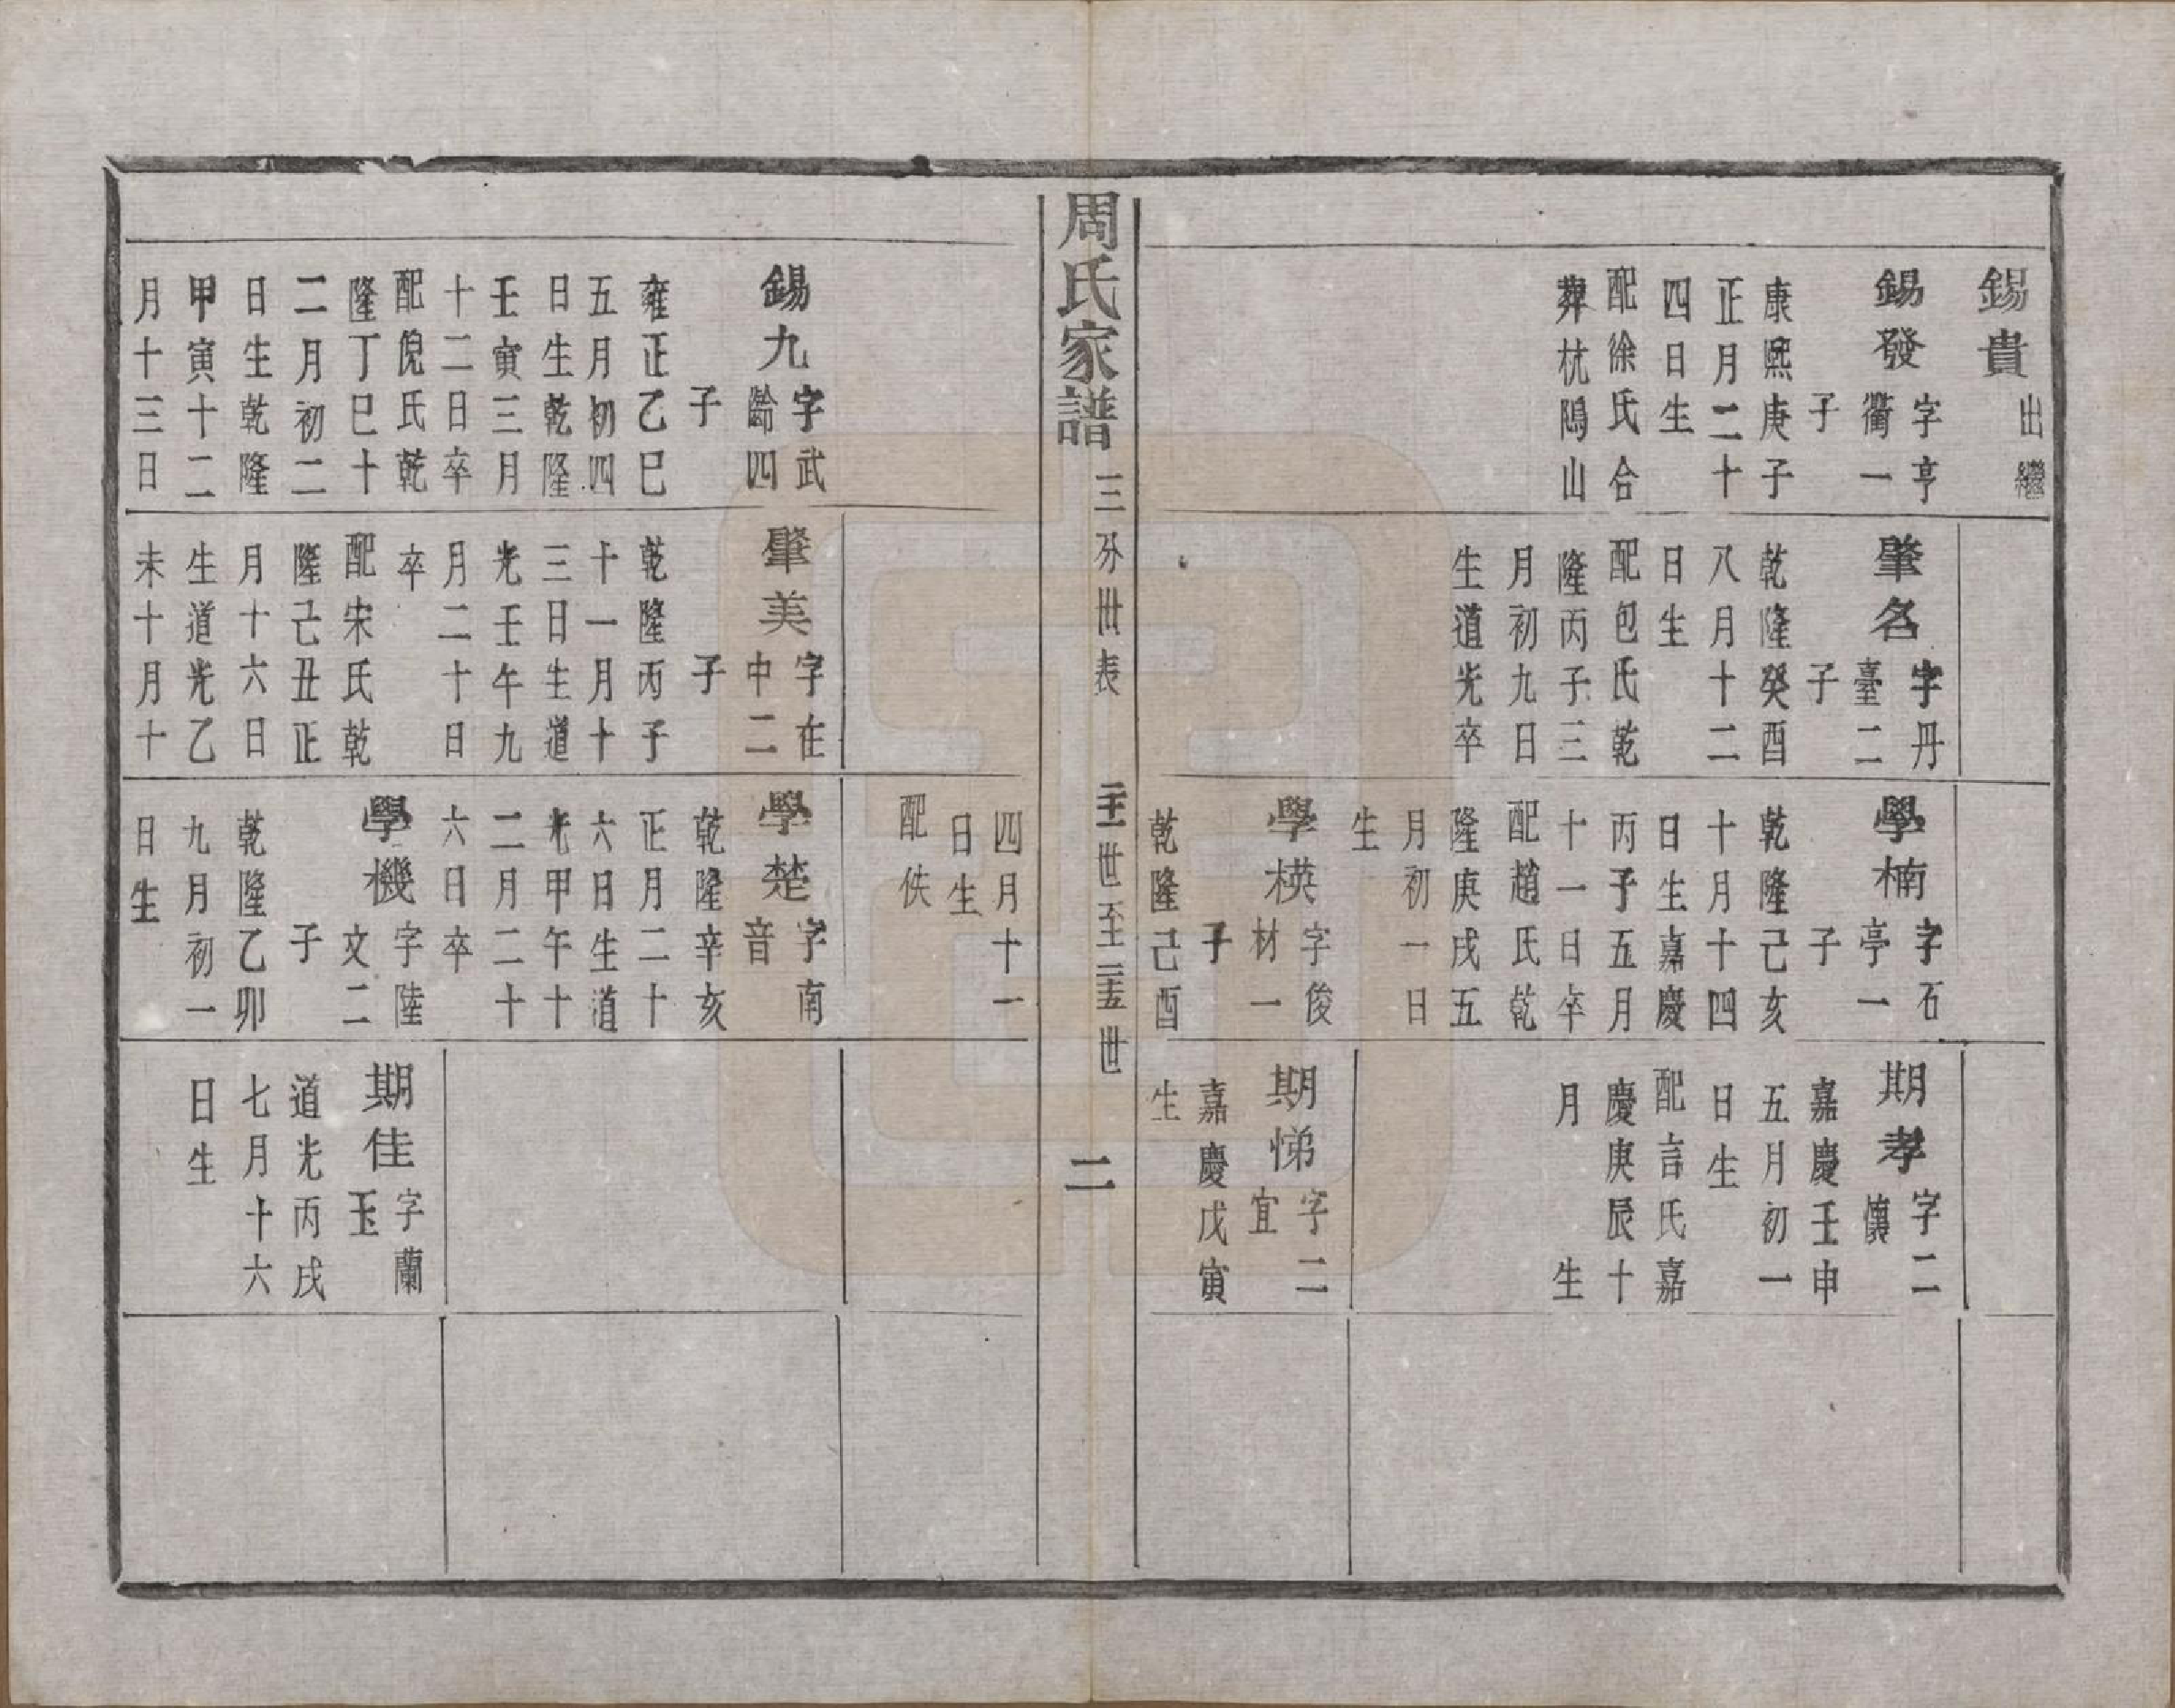 錫貴出繼
錫發字亨
衢一
子
康熙庚子
正月二十
四日生
配徐氏合
葬杕隝山
肇名字丹
臺二
子
乾隆癸酉
八月十二
日生
配包氏乾
隆丙子三
月初九日
生道光卒
學楠字石
亭一
子
乾隆己亥
十月十四
日生嘉慶
丙子五月
十一日卒
配趙氏乾
隆庚戌五
月初一日
生
學横字俊
材一
子
乾隆己酉
期孝字二
慎
嘉慶壬申
五月初一
日生
配言氏嘉
慶庚辰十
月生
期悌字二
宜
嘉慶戊寅
生
周氏家譜
三分世表
二十一世至二十五世
二
錫九字武
齡四
子
雍正乙巳
五月初四
日生乾隆
壬寅三月
十二日卒
配倪氏乾
隆丁巳十
二月初二
日生乾隆
甲寅十二
月十三日
肇美字在
中二
子
乾隆丙子
十一月十
三日生道
光壬午九
月二十日
卒
配宋氏乾
隆己丑正
月十六日
生道光乙
未十月十
四月十一
日生
配佚
學楚字南
音
乾隆辛亥
正月二十
六日生道
光甲午十
二月二十
六日卒
學機字陸
文二
子
乾隆乙卯
九月初一
日生
期佳字蘭
玉
道光丙戌
七月十六
日生